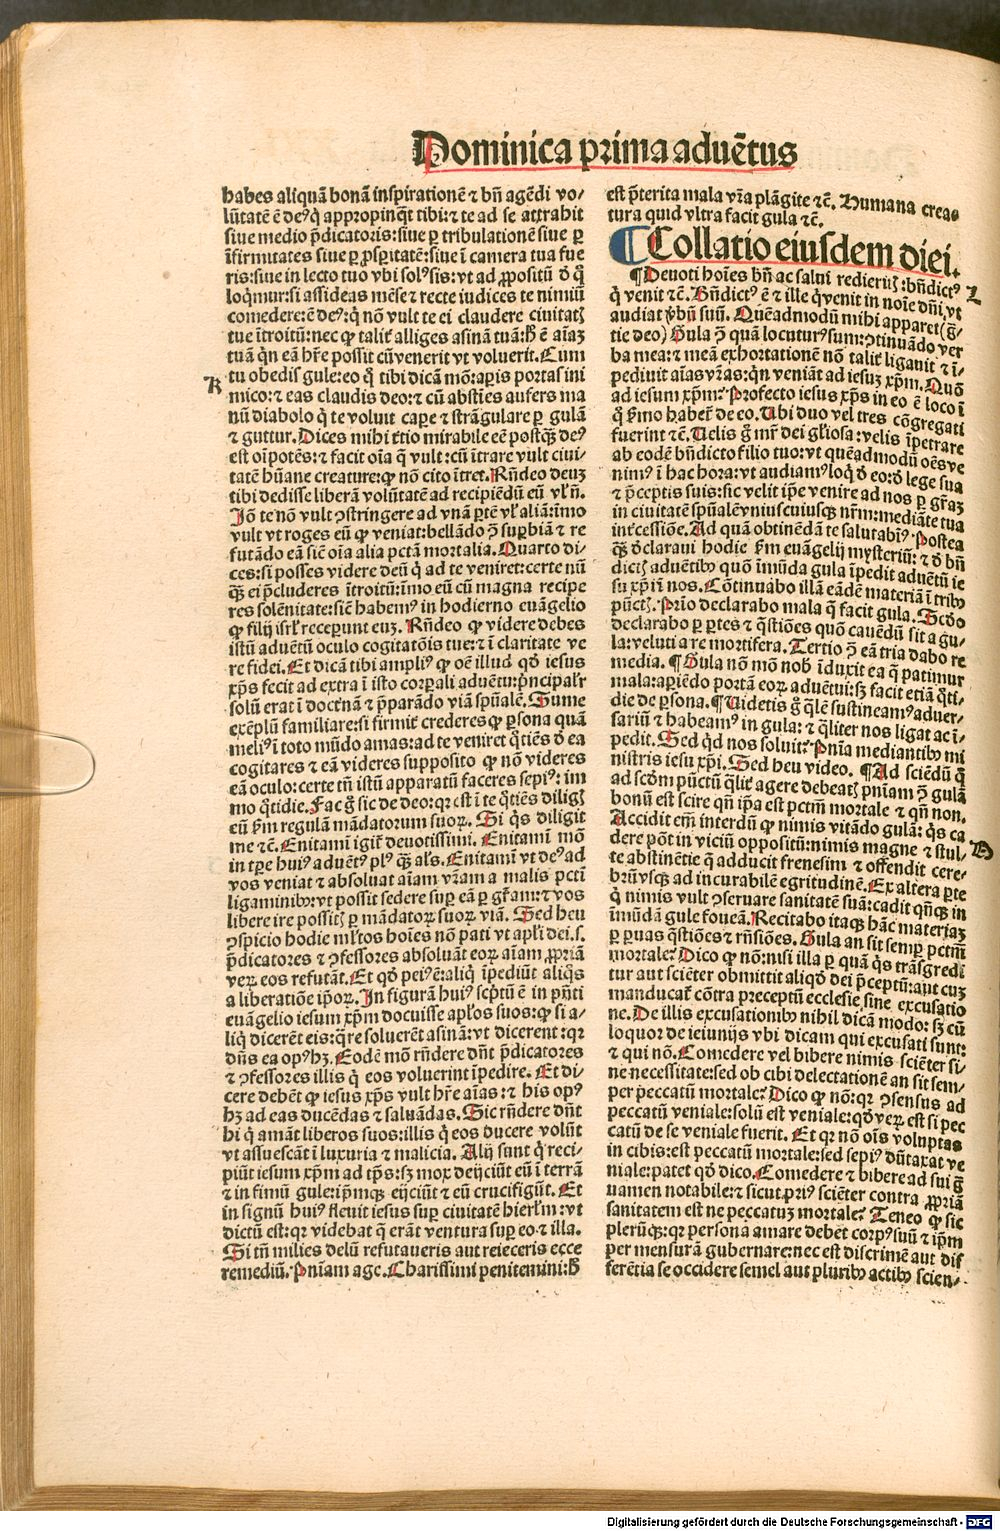 Dominica prima aduētus
habes aliquā bonā inspirationē ⁊ bñ agēdi vo/
lūtatē ē deꝰ q̇ appropinq̄t tibi: ⁊ te ad se attrahit
siue medio p̄dicatoris: siue ꝑ tribulationē siue ꝑ
īfirmitates siue ꝑ ꝓsꝑitatē: siue ī camera tua fue
ris: siue in lecto tuo vbi solꝰ sis: vt ad ꝓpositū ō q̇
loq̄mur: si assideas mēse ⁊ recte iudices te nimiū
comedere: ē deꝰ: q̇ nō vult te ei claudere ciuitatꝭ
tue ītroitū: nec ꝙ talit̄ alliges asinā tuā: h̄ ē aīaꝫ
tuā q̇n eā hr̄e possit cū venerit vt voluerit. Cum
K
tu obedis gule: eo q̇ tibi dicā mō: aꝑis portas ini
mico: ⁊ eas claudis deo: ⁊ cū absties aufers ma
nū diabolo q̇ te voluit caꝑe ⁊ strāgulare ꝑ gulā
⁊ guttur. Dices mihi t̄tio mirabile eē postq̄ꝫ deꝰ
est oīpotēs: ⁊ facit oīa q̄ vult: cū ītrare vult ciui/
tatē hūane creature: ꝙ nō cito ītret. Rn̄deo deuꝫ
tibi dedisse liberā volūtatē ad recipiēdū eū vl̓ ñ.
Jō te nō vult ↄstringere ad vnā ꝑtē vl̓ aliā: īmo
vult vt roges eū ꝙ veniat: bellādo ↄ̄ suꝑbiā ⁊ re
futādo eā sic̄ oīa alia pctā mortalia. Quarto di/
ces: si posses videre deū q̇ ad te veniret: certe nū
q̄ꝫ ei p̄cluderes ītroitū: īmo eū cū magna recipe
res solēnitate: sic̄ habemꝰ in hodierno euāgelio
ꝙ filij isrl̓ receꝑunt euꝫ. Rn̄deo ꝙ videre debes
istū aduētū oculo cogitatōis tue: ⁊ ī claritate ve
re fidei. Et dicā tibi ampliꝰ ꝙ oē illud qd̓ iesus
xp̄s fecit ad extra ī isto corꝑali aduētu: pͥncipalr̄
solū erat ī doctͥnā ⁊ p̄parādo viā sp̄ualē. Sume
exēplū familiare: si firmit̄ crederes ꝙ ꝑsona quā
meliꝰ ī toto mūdo amas: ad te veniret q̄tiēs ō ea
cogitares ⁊ eā videres supposito ꝙ nō videres
eā oculo: certe tn̄ istū apparatū faceres sepiꝰ: im
mo q̄tidie. Fac g̊ sic de deo: qꝛ est ī te q̄tiēs diligꝭ
eū ẜm regulā mādatorum suoꝝ. Si q̇s diligit
me ⁊c̄. Enitamī igit̄ deuotissimi. Enitamī mō
in tꝑe huiꝰ aduētꝰ plꝰ q̄ꝫ al̓s. Enitamī vt deꝰ ad
vos veniat ⁊ absoluat aīam vr̄am a malis pcti
ligaminibꝰ: vt possit sedere suꝑ eā ꝑ gr̄am: ⁊ vos
libere ire possitꝭ ꝑ mādatoꝝ suoꝝ viā. Sed heu
ↄspicio hodie ml̓tos hoīes nō pati vt apl̓i dei. s.
p̄dicatores ⁊ ↄfessores absoluāt eoꝝ aīam ꝓpriā
veꝝ eos refutāt. Et qd̓ peiꝰ ē: aliq̇ īpediūt aliq̇s
a liberatiōe ip̄oꝝ. In figurā huiꝰ scp̄tū ē in pn̄ti
euāgelio iesum xp̄m docuisse apl̓os suos: ꝙ si a/
liq̇ dicerēt eis: q̄re soluerēt asinā: vt dicerent: qꝛ
dn̄s ea opꝰ hꝫ. Eodē mō rn̄dere dn̄t p̄dicatores
⁊ ↄfessores illis q̇ eos voluerint īpedire. Et di/
cere debēt ꝙ iesus xp̄s vult hr̄e aīas: ⁊ his opꝰ
hꝫ ad eas ducēdas ⁊ saluādas. Sic rn̄dere dn̄t
hi q̇ amāt liberos suos: illis q̇ eos ducere volūt
vt assuescāt ī luxuria ⁊ malicia. Alij sunt q̇ reci/
piūt iesum xp̄m ad tp̄s: sꝫ mox deijciūt eū ī terrā
⁊ in fimū gule: ip̄mqꝫ eijciūt ⁊ eū crucifigūt. Et
in signū huiꝰ fleuit iesus suꝑ ciuitatē hierl̓m: vt
dictū est: qꝛ videbat q̄ erāt ventura suꝑ eo ⁊ illa.
Si tn̄ milies delū refutaueris aut reieceris ecce
remediū. Pn̄iam age. Charissimi penitemini: h̄
est p̄terita mala vr̄a plāgite ⁊c̄. Humana crea/
tura quid vltra facit gula ⁊c̄.
Collatio eiusdem diei.
¶ Deuoti hoīes bñ ac salui redieritꝭ: bn̄dictꝰ
L
q̇ venit ⁊c̄. Bn̄dictꝰ ē ⁊ ille q̇ venit in noīe dn̄i, vt
audiat v̓bū suū. Quēadmodū mihi apparet (g̓/
tie deo) Gula ↄ̄ quā locuturꝰ sum: ↄtinuādo ver
ba mea: ⁊ meā exhortationē nō talit̄ ligauit ⁊ ī/
pediuit aīas vr̄as: q̇n veniāt ad iesuꝫ xp̄m. Quō
ad iesum xp̄m? Profecto iesus xp̄s in eo ē loco ī
q̇ ẜmo habet̄ de eo. Ubi duo vel tres cōgregati
fuerint ⁊c̄. Uelis g̊ mr̄ dei gl̓iosa: velis īpetrare
ab eodē bn̄dicto filio tuo: vt quēadmodū oēs ve
nimꝰ ī hac hora: vt audiamꝰ loq̇ ō eo: ō lege sua
⁊ p̄ceptis suis: sic velit ip̄e venire ad nos ꝑ gr̄aꝫ
in ciuitatē sp̄ualē vniuscuiusqꝫ nr̄m: mediāte tua
int̄cessiōe. Ad quā obtinēdā te salutabiꝰ. Postea
q̄ꝫ ōclaraui hodie ẜm euāgelij mysteriū: ⁊ ō bñ
dictꝭ aduētibꝰ quō īmūda gula īpedit aduētū ie
su xp̄i ī nos. Cōtinuabo illā eādē materiā ī tribꝰ
pūctꝭ. Prīo declarabo mala q̄ facit gula. Scd̓o
declarabo ꝑ ꝑtes ⁊ q̄stiōes quō cauēdū sit a gu/
la: veluti a re mortifera. Tertio ↄ̄ eā tria dabo re
media. ¶ Gula nō mō nob̄ īduxit ea q̄ patimur
mala: aꝑiēdo portā eoꝝ aduētui: sꝫ facit etiā q̄ti/
die de ꝑsona. ¶ Uidetis g̊ q̄lē sustineamꝰ aduer/
sariū ⁊ habeamꝰ in gula: ⁊ q̄liter nos ligat ac ī/
pedit. Sed q̇d nos soluit? Pn̄ia mediantibꝰ mi
nistris iesu xp̄i. Sed heu video. ¶ Ad sciēdū q̄
ad scd̓m pūctū q̄lit̄ agere debeatꝭ pn̄iam ↄ̄ gulā
bonū est scire qn̄ ip̄a est pctm̄ mortale ⁊ qn̄ non.
Accidit em̄ interdū ꝙ nimis vitādo gulā: q̇s ca
dere pōt in viciū oppositū: nimis magne ⁊ stul/
M
te abstinētie q̄ adducit frenesim ⁊ offendit cere/
brū vsqꝫ ad incurabilē egritudinē. Ex altera ꝑte
q̇ nimis vult ↄseruare sanitatē suā: cadit qn̄qꝫ in
īmūdā gule foueā. Recitabo itaqꝫ hāc materiaꝫ
ꝑ ꝑuas q̄stiōes ⁊ rn̄siōes. Gula an sit semꝑ pctm̄
mortale? Dico ꝙ nō: nisi illa ꝑ quā q̇s trāsgredi
tur aut sciēter obmittit aliqd̓ dei p̄ceptū: aut cuꝫ
manducat̄ cōtra preceptū ecclesie sine excusatio
ne. De illis excusationibꝰ nihil dicā modo: sꝫ cū
loquor de ieiunijs vbi dicam qui excusati sunt:
⁊ qui nō. Comedere vel bibere nimis sciēter si/
ne necessitate: sed ob cibi delectationē an sit sem/
per peccatū mortale? Dico ꝙ nō: qꝛ ↄsensus ad
peccatū veniale: solū est veniale: qd̓ veꝝ est si pec
catū de se veniale fuerit. Et qꝛ nō oīs voluptas
in cibis: est peccatū mortale: sed sepiꝰ dūtaxat ve
niale: patet qd̓ dico. Comedere ⁊ bibere ad sui g̓
uamen notabile: ⁊ sicut priꝰ sciēter contra ꝓpriā
sanitatem est ne peccatuꝫ mortale? Teneo ꝙ sic
plerūqꝫ: qꝛ persona amare debet corpꝰ suū ⁊ ip̄m
per mensurā gubernare: nec est discrimē aut dif
ferētia se occidere semel aut pluribꝰ actibꝰ scien/
Digitalisierung gefördert durch die Deutsche Forschungsgemeinschaft - DFG